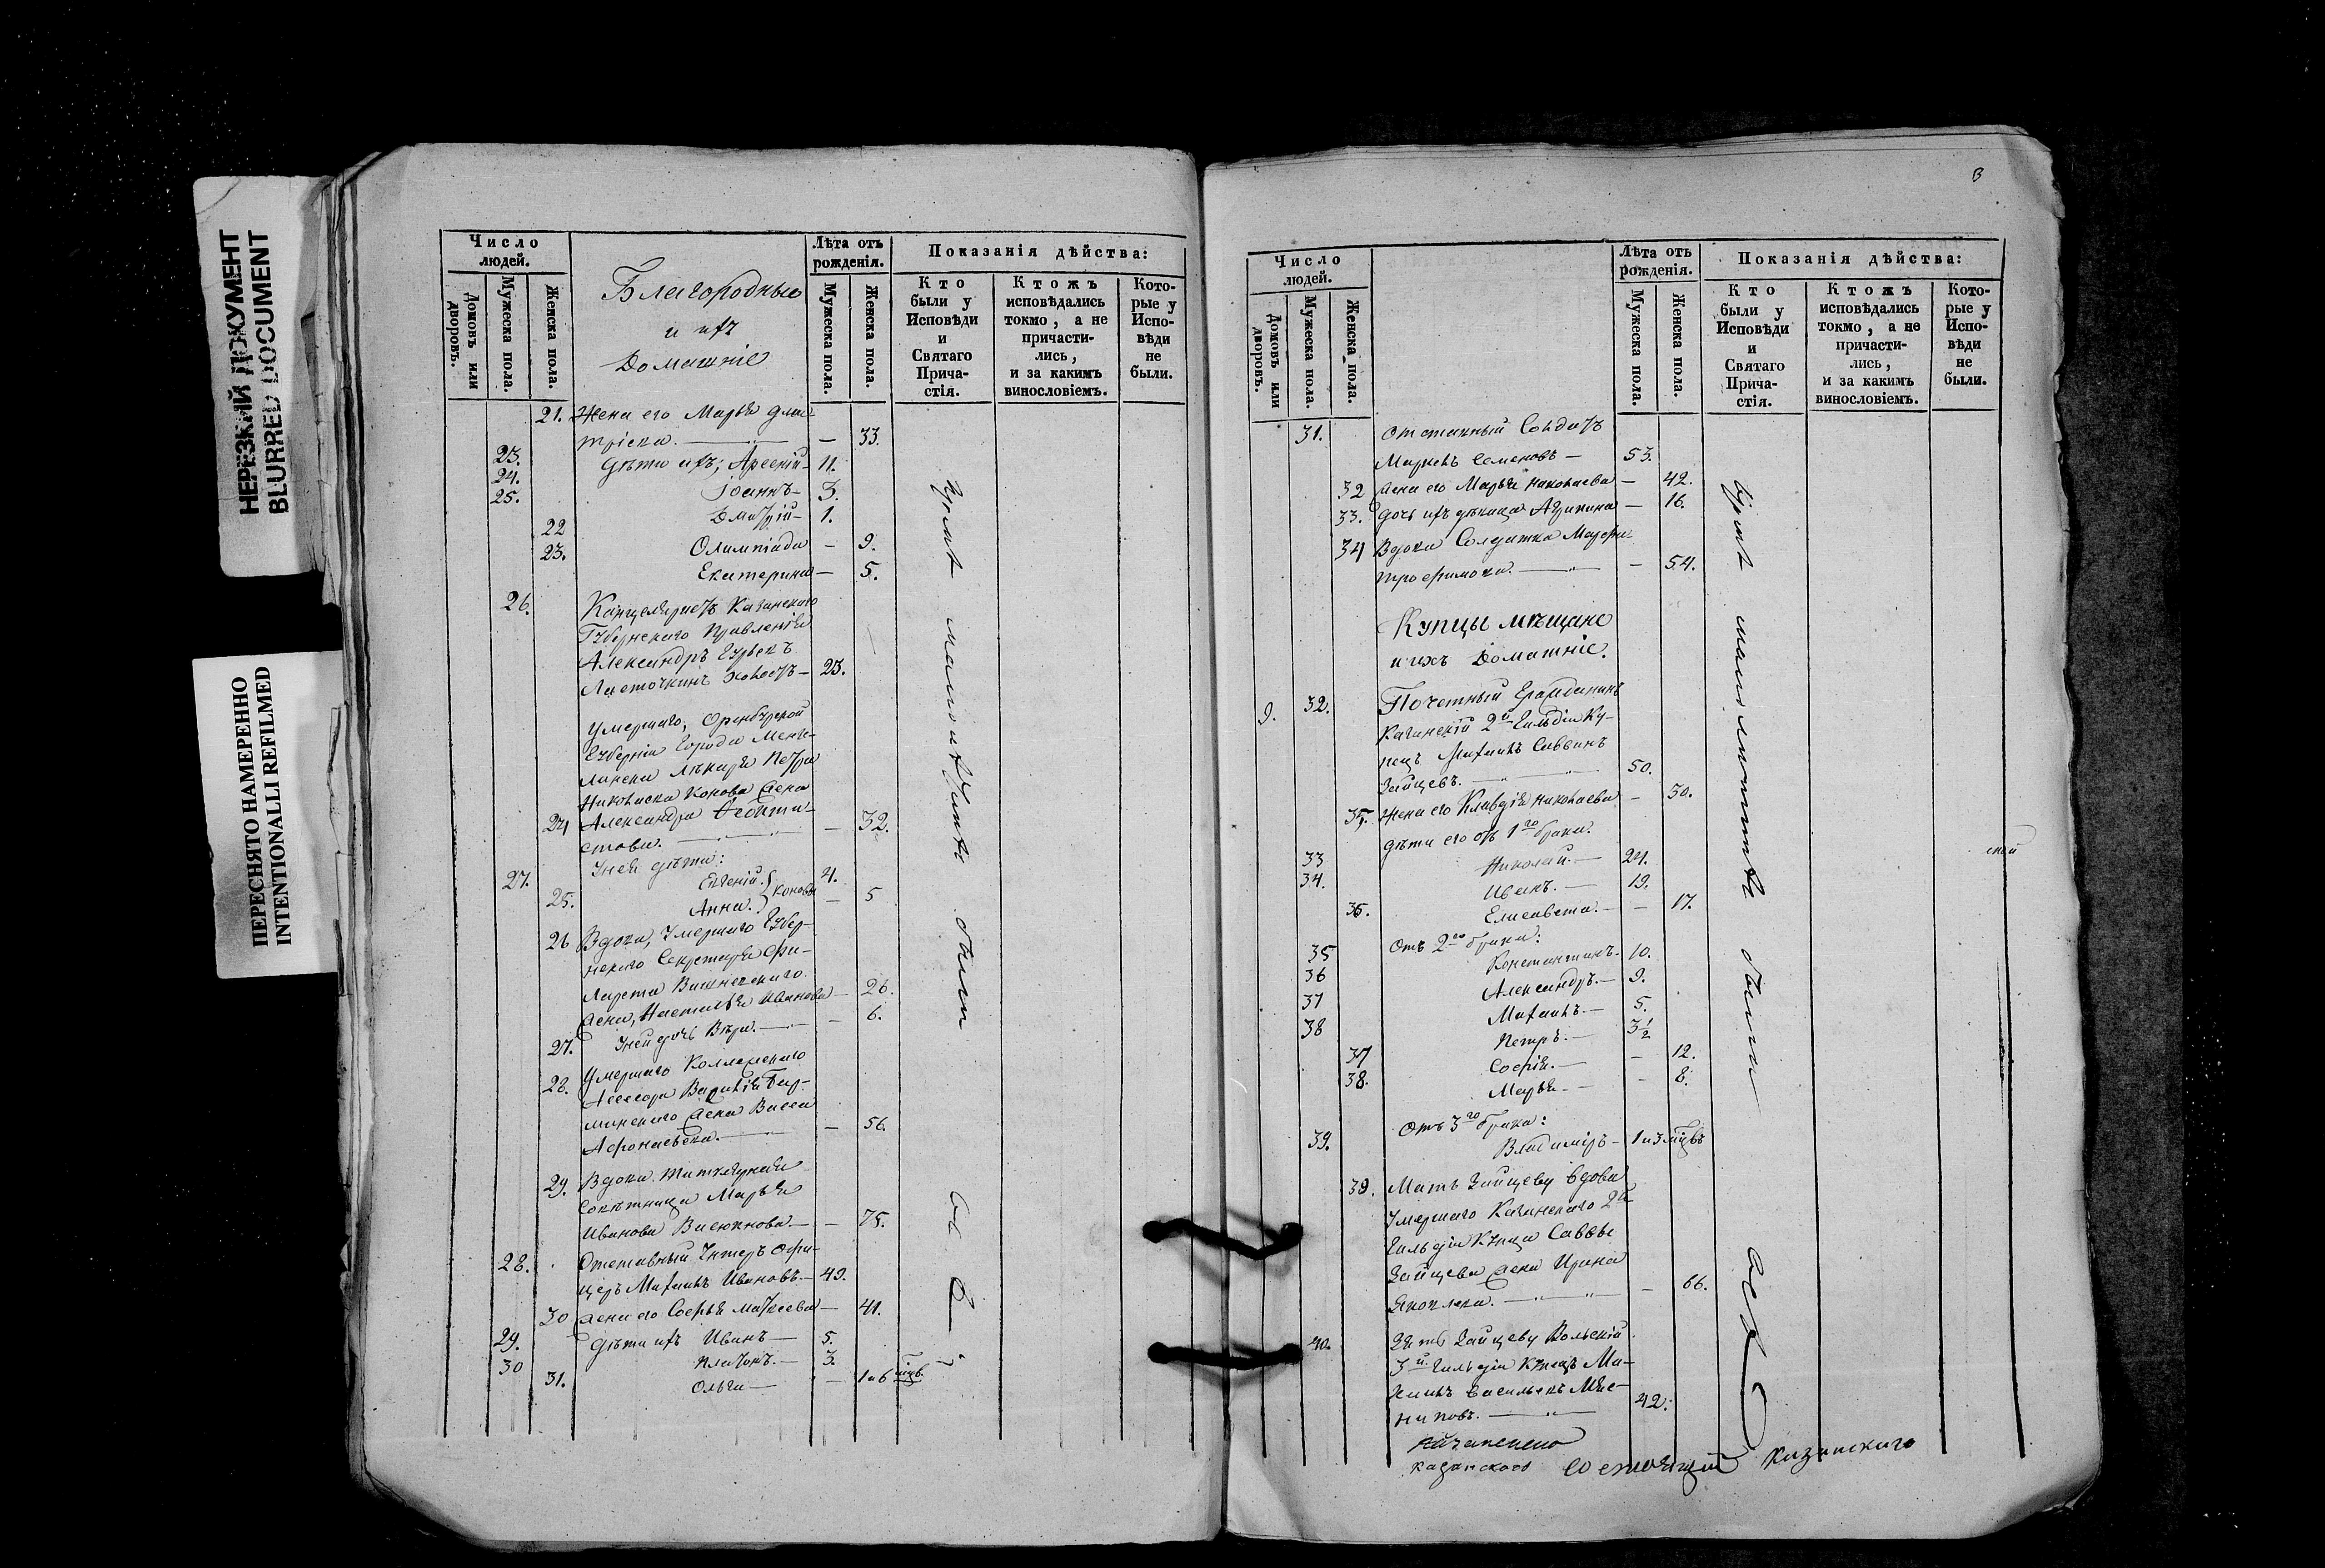 НЕРЕЗКИЙ ДОКУМЕНТ
BLURRED DOCUMENT
ПЕРЕСНЯТО НАМЕРЕННО
INTENTIONALLI REFILMED
Число людей.
Домовъ или дворовъ.
Мужеска пола.
Женска пола.
Благородные
и ихъ
Домашніе
Лѣта отъ рожденія.
Мужеска пола.
Женска пола.
Показанія дѣйства:
Кто были у Исповѣди и Святаго Прича-стія.
Ктожъ исповѣдались токмо, а не причасти-лись, и за какимъ винословіемъ.
Кото-рые у Испо-вѣди не были.
21. Жена его Марья Дми-
тріева. — 33.
23. Дѣти ихъ; Арсеній — 11.
24. Іоаннъ — 3.
25. Дмитрій — 1.
22 Олимпіада — 9.
23. Екатерина — 5.
26. Канцеляристъ Казанскаго
Губернскаго Правленія
Александръ Гурьевъ
Ласточкинъ холостъ — 23.
Умершаго, Оренбургской
Губерніи Города Мензе-
линска Лѣкаря Петра
Николаева Конова жена
24 Александра
— 32.
У ней дѣти:
27. Евгеній. 4.
25. Анна. Коновы — 5
26 Вдова, Умершаго Губер-
нскаго Секретаря Фи-
ларета Вишневскаго
жена, Настасья Иванова — 26.
27. У ней дочь Вѣра. — 6.
28. Умершаго Коллежскаго
Асессора Василія
жена Васса
Афонасьева. — 56.
29. Вдова Титулярная
Совѣтница Марья
Иванова — 75.
28. Отставный Унтеръ Офи-
церъ Михаилъ Ивановъ. — 49.
30 Жена его Софья Матвеева — 41.
29. Дѣти ихъ Иванъ — 5.
30 Платонъ. — 3.
31. Ольга — 1 и 6 мцв.
были
Число людей.
Домовъ или дворовъ.
Мужеска пола.
Женска пола.
Лѣта отъ рожденія.
Мужеска пола.
Женска пола.
Показанія дѣйства:
Кто были у Исповѣди и Святаго Прича-стія.
Ктожъ исповѣдались токмо, а не причасти-лись, и за какимъ винословіемъ.
Кото-рые у Испо-вѣди не были.
31. Отставный Солдатъ
Семеновъ — 53.
32 Жена его Марья Николаева — 42.
33. Дочь ихъ дѣвица — 16.
34 Вдова Солдатка
Трофимова. — 54.
Купцы мѣщане
и ихъ Домашніе.
9. 32. Почетный Гражданинъ
Казанскій 2й Гильдіи Ку-
пецъ Михаилъ Саввинъ
Зайцевъ. — 50.
35. Жена его Клавдія Николаева — 30.
Дѣти его отъ 1го брака:
33 Николай. — 24.
34. Иванъ. — 19.
36. Елисавета. — 17.
Отъ 2го брака:
35 Константинъ. 10.
36 Александръ. — 9.
37 Михаилъ. — 5.
38 Петръ. — 3½
37 Софія. — 12.
38. Марья. — 8.
Отъ 3го брака:
39. Владиміръ — 1 и 3 мцвъ
39. Мать Зайцеву вдова
Умершаго Казанскаго 2й
Гильдіи Купца Саввы
Зайцева жена Ирина
Яковлева. — 66.
40. Зять Зайцеву Вольскій
3й Гильдіи Купецъ Ми-
хаилъ Васильевъ Мяс-
никовъ. — 42.
были
Казанскаго
состоящій Казанскаго